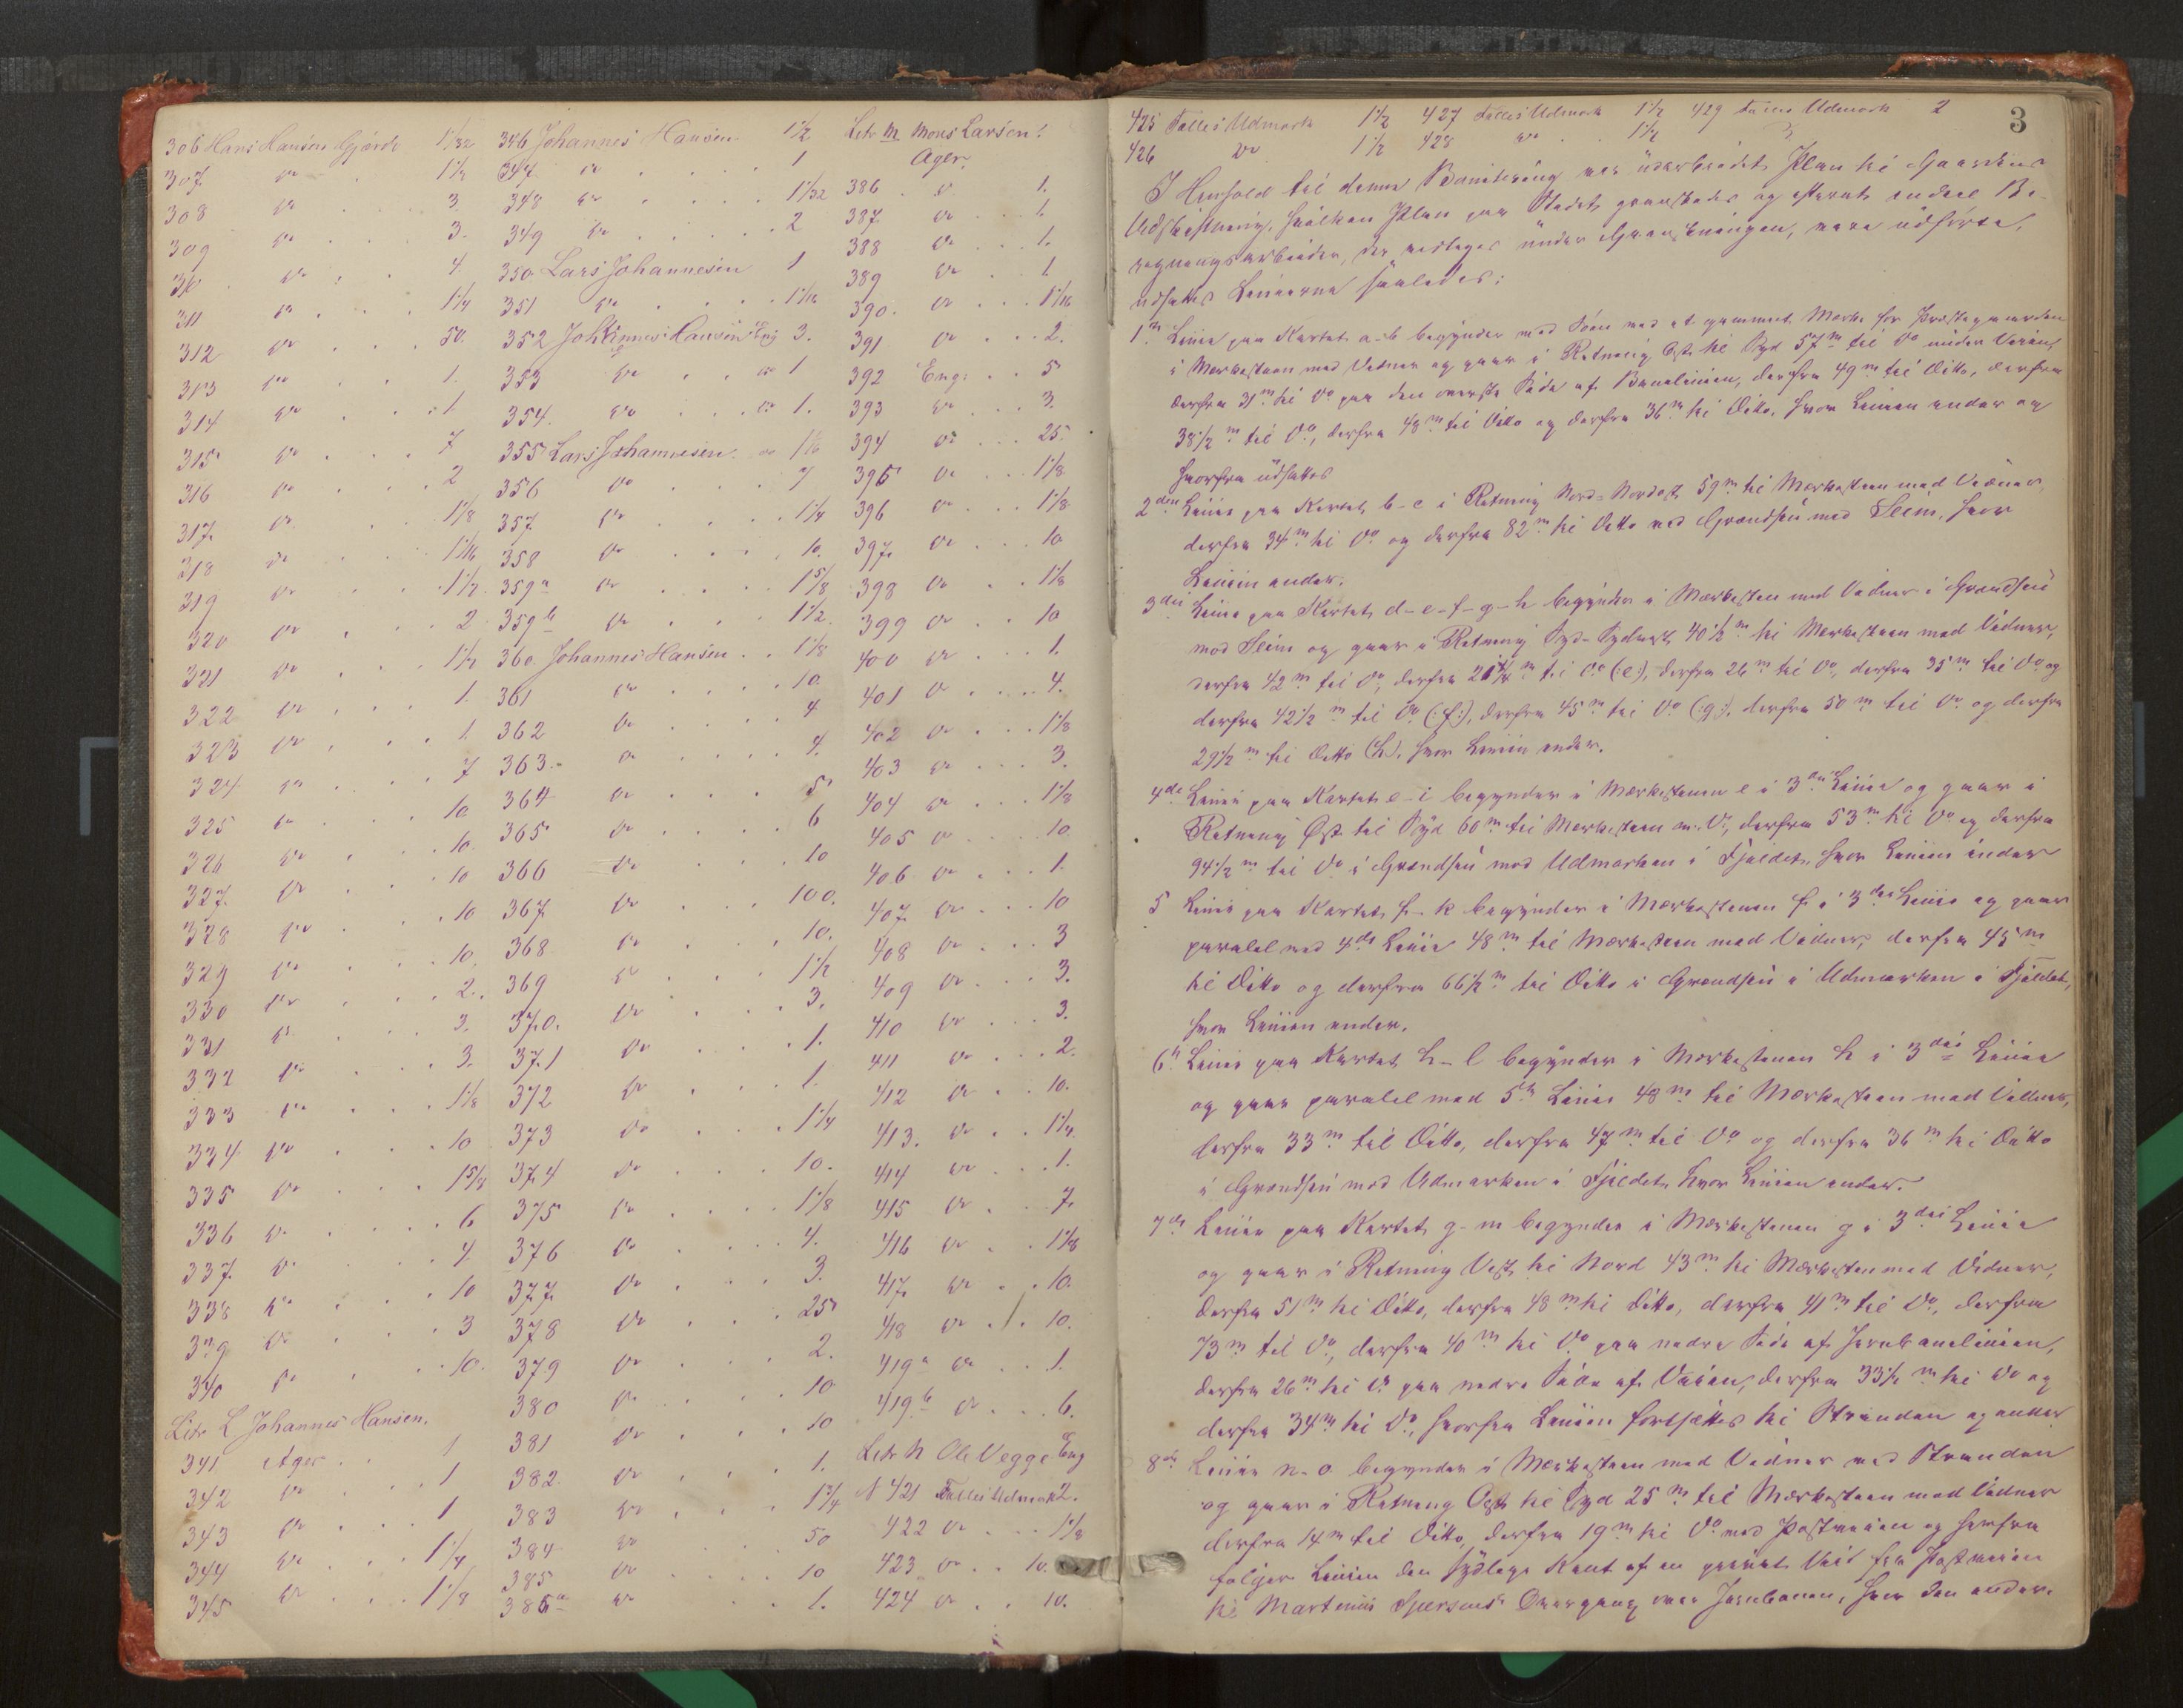 306 Hans Hansen Gjærde 1 1/32
307 do 1 1/2
308 do 3
309 do 3.
310 do 4
311 do 1 1/4
312 do 50.
313 do 1.
314 do 1.
315 do 7
316 do 2
317. do 1 1/8
318 do 1 1/16
319 do 1 1/2
320 do 2
321 do 1 1/2
322 do 1.
323 do 1
324 do 7
325 do 10
326 do 10.
327. do 10
328 do 10
329 do 10.
330 do 2.
331 do 3.
332 do 3.
333 do 1 1/8
334 do 10
335 do 1 5/8
336 do 6
337. do 4
338 do 10
339. do 3
340 do 10.
Litr L Johannes Hansen.
341 Ager 1
342 do 1
343 do 1
344 do 1 1/4
345 do 1 1/8
346 Johannes Hansen 1 1/2
347. do 1
348 do 1 1/32
349 do 2
350. Lars Johannesen 1
351 do 1 1/16
352 Johannes Hansen Eng 3.
353 do do 1
354. do do 1.
355 Lars Johannesen do 1 1/16
356 do 7
357 do 1 1/4
358 do 10.
359 a do 1 5/8
359 b do 1 1/2.
360. Johannes Hansen 1 1/8
361 do 10
362 do 4
363. do 4.
364 do 5
365 do 6
366 do 10
367. do 100.
368 do 10.
369 do 1 1/2
370. do 3.
371 do 1.
372 do 1.
373 do 1 1/4
374 do 10.
375 do 1 1/8
376 do 4.
377. do 3.
378 do 25
379 do 2.
380 do 10
381 do 10
382. do 1.
383 do 1 3/4
384 do 50
385 do 10
386 a do 1.
Litr M Mons Larsen.
Ager
386 do 1.
387. do 1.
388 do 1.
389 do 1.
390. do 1 1/16
391 do 2.
392 Eng. 5
393 do 3.
394 do 25.
395 do 1 1/8
396 do 1 1/8
397. do 10
398 do 1 1/8
399 do 10
400 do 1.
401 do 4.
402 do 1 1/8
403 do 3.
404 do 1 1/8
405 do 10.
406 do 1.
407. do 10
408 do 3
409 do 3.
410 do 3.
411 do 2.
412 do 10.
413. do 1 1/4.
414 do 1.
415 do 7.
416 do 1 1/8
417. do 10.
418 do 10.
419 a do 1.
419 b do 6.
Litr N Ole Vegge Eng
N 421 Fælles Udmark 2.
422 do 1 1/2
423 do 10.
424 do 10.
3
425 Fælles Udmark 1 1/2 427 Fælles Udmark 1 1/2 429 Fælles Udmark 2
426 do 1 1/2 428 do 1 1/2
I Henhold til denne Bonitering var udarbeidet Plan til Gaardens
Udskiftning, hvilken Plan paa Stedet granskedes og efterat endeel Be-
regningsarbeider, der vedtoges under Granskningen, vare udførte,
udsattes Linierne saaledes:
1ste Linie paa Kartet a-b begynder ved Søen ved et gammelt Merke for Præstegaarden
i Merkesteen med Vidner og gaar i Retning Øst til Syd 57 m til do under Veien,
derfra 31 m til do paa den øverste Side af Banelinien, derfra 49 m til Ditto, derfra
38 1/2 m til do, derfra 48 m til Ditto og derfra 36 m til Ditto, hvor Linien ender og
hvorfra udsattes
2den Linie paa Kartet b-c i Retning Nord-Nordost 59 m til Merkesteen med Vidner,
derfra 34 m til do og derfra 82 m til Ditto ved Grændsen med Seim, hvor
Linien ender.
3die Linie paa Kartet d-e-f-g-h begynder i Merkesteen med Vidner i Grændsen
mod Seim og gaar i Retning Syd-Sydvest 40 1/2 m til Merkesteen med Vidner,
derfra 42 m til do, derfra 21 1/4 m til do (:e:), derfra 26 m til do, derfra 35 m til do og
derfra 42 1/2 m til do (:f:), derfra 45 m til do (:g:), derfra 50 m til do og derfra
29 1/2 m til Ditto (h), hvor Linien ender.
4de Linie paa Kartet e-i begynder i Merkestenen e i 3die Linie og gaar i
Retning Øst til Syd 60 m til Merkesteen m. V., derfra 53 m til do og derfra
94 1/2 m til do i Grændsen mod Udmarken i Fjeldet, hvor Linien ender
5 Linie paa Kartet f-k begynder i Merkestenen f i 3die Linie og gaar
paralel med 4de Linie 48 m til Merkesteen med Vidner, derfra 45 m
til Ditto og derfra 66 1/2 m til Ditto i Grændsen i Udmarken i Fjeldet,
hvor Linien ender.
6te Linie paa Kartet h-l begynder i Merkestenen h i 3die Linie
og gaar paralel med 5te Linie 48 m til Merkesteen med Vidner,
derfra 33 m til Ditto, derfra 47 m til do og derfra 36 m til Ditto
i Grændsen mod Udmarken i Fjeldet, hvor Linien ender.
7de Linie paa Kartet g-m begynder i Merkestenen g i 3die Linie
og gaar i Retning Vest til Nord 43 m til Merkesteen med Vidner,
derfra 51 m til Ditto, derfra 48 m til Ditto, derfra 41 m til do, derfra
73 m til do, derfra 40 m til do paa nedre Side af Jernbanelinien,
derfra 26 m til do paa nedre Side af Veien, derfra 33 1/2 m til do og
derfra 34 m til do, hvorfra Linien fortsættes til Stranden og ender
8de Linie n-o begynder i Merkesteen med Vidner ved Stranden
og gaar i Retning Øst til Syd 25 m til Merkesteen med Vidner
derfra 14 m til Ditto, derfra 19 m til do ved Postveien og herfra
følger Linien den sydlige Kant af en privat Vei fra Postveien
til Martinus Overgang over Jernbanen, hvor den ender.